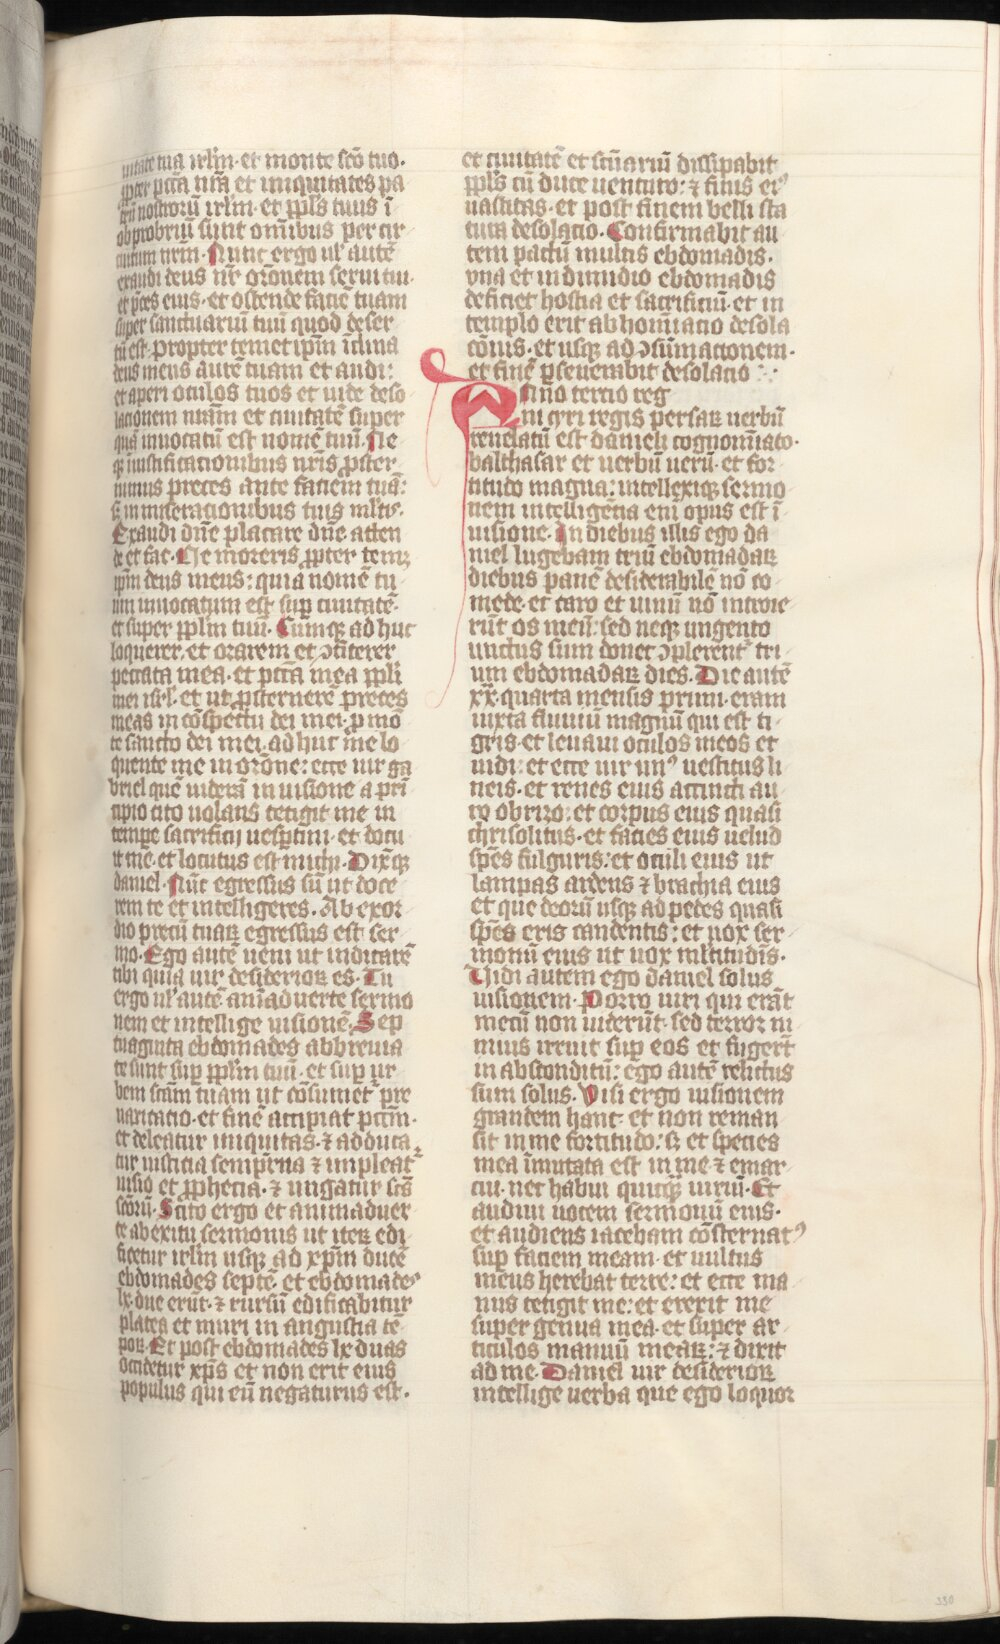 uitate tua irl̄m· et monte scō tuo·
ꝓpter pctā nr̄a et iniquitates pa
trū nostrorū irl̄m· et ppl̄s tuus ī
obprobriū sunt om̄ibus per cir
cuitum nr̄m· Nunc ergo ul' autē
exaudi deus nr̄ or̄onem serui tui·
et p̄ces eius· et ostende faciē tuam
super sanctuariū tuū quod deser
tū est· propter temetip̄m īclina
deus meus aurē tuam et audi:
et aperi oculos tuos et uide deso
lacionem nr̄am et ciuitatē super
quā inuocatū est nomē tuū· Ne
qꝫ iustificacionibus nr̄is ꝓster
nimus preces ante faciem tuā:
sꝫ in miseracionibus tuis ml̄tis·
Exaudi dn̄e placare dn̄e atten
de et fac· Ne moreris ꝓpter temꝫ
ip̄m deus meus: quia nomē tu
um inuocatum est sup̄ ciuitatē·
et super ppl̄m tuū· Cumqꝫ ad huc
loquerer· et orarem et ꝯfiterer
peccata mea· et pctā mea ppl̄i
mei isr̄l· et ut ꝓsternerē preces
meas in cōspectu dei mei· ꝓ mō
te sancto dei mei· ad huc me lo
quente me in or̄one: ecce uir ga
briel quē uiderā in uisione a prī
cipio cito uolans tetigit me in
tempe sacrificij uesꝑtini· et docu
it me· et locutus est michi· Dixitqꝫ
daniel· Nūc egressus sū ut doce
rem te et intelligeres· Ab exor
dio precū tuaꝝ egressus est ser
mo· Ego autē ueni ut indicarē
tibi quia uir desiderioꝝ es· Tu
ergo ul' autē aīaduerte sermo
nem et intellige uisionē· Sep
tuaginta ebdomades abbreuia
te sunt sup̄ ppl̄m tuū· et sup̄ ur
bem scām tuam ut cōsumet' pre
uaricatio· et finē accipiat pctm̄·
et deleatur iniquitas· ⁊ adduca
tur iusticia sempit̄na ⁊ impleat'
uisio et ꝓphecia· ⁊ ungatur scs̄
scōrū· Scito ergo et animaduer
te ab exitu sermonis ut iteꝝ edi
ficetur irl̄m usqꝫ ad xp̄m ducē
ebdomades septē· et ebdomades
lx· due erūt· ⁊ rursū edificabitur
platea et muri in angustia tē
poꝝ· Et post ebdomades lx duas
occidetur xp̄s et non erit eius
populus qui eū negaturus est·
et ciuitatē et scūariū dissipabit
ppl̄s cū duce uenturo: ⁊ finis eiꝰ
uastitas· et post finem belli sta
tuta desolacio· Confirmabit au
tem pactū multis ebdomadis·
vna et in dimidio ebdomadis
deficiet hostia et sacrificiū· et in
templo erit abhomīacio desola
cōnis· et usqꝫ ad ꝯsūmacionem·
et finē ꝑseuerabit desolacio :·
Anno tercio reg
ni cyri regis persaꝝ uerbū
reuelatū est danieli cognomīato·
balthasar et uerbū uerū· et for
titudo magna: intellexitqꝫ sermo
nem intelligēcia enī opus est ī
uisione· In diebus illis ego da
niel lugebam triū ebdomadaꝝ
diebus panē desiderabilē nō co
mede· et caro et uinū nō introie
rūt os meū: sed neqꝫ ungento
unctus sum donec ꝯplerent' tri
um ebdomadaꝝ dies· Die autē
xx· quarta mensis primi· eram
iuxta fluuiū magnū qui est ti
gris· et leuaui oculos meos et
uidi: et ecce uir unꝰ uestitus li
neis· et renes eius accincti au
ro obrizo: et corpus eius quasi
chrisolitus· et facies eius uelud
spēs fulguris: et oculi eius ut
lampas ardens ⁊ brachia eius
et que deorū usqꝫ ad pedes quasi
spēs eris candentis: et uox ser
monū eius ut uox ml̄titudīs·
Uidi autem ego daniel solus
uisionem· Porro uiri qui erāt
mecū non uiderūt· sed terror ni
mius irruit sup̄ eos et fugerūt
in absconditū: ego autē relictus
sum solus· Uisi ergo uisionem
grandem hanc· et non reman
sit in me fortitudo: sꝫ et species
mea īmutata est in me ⁊ emar
cui· nec habui quitqꝫ uiriū· Et
audiui uocem sermonū eius·
et audiens iacebam cōsternatꝰ
sup̄ faciem meam· et uultus
meus herebat terre: et ecce ma
nus tetigit me: et erexit me
super genua mea· et super ar
ticulos manuū meaꝝ: ⁊ dixit
ad me· Daniel uir desiderioꝝ
intellige uerba que ego loquor
330